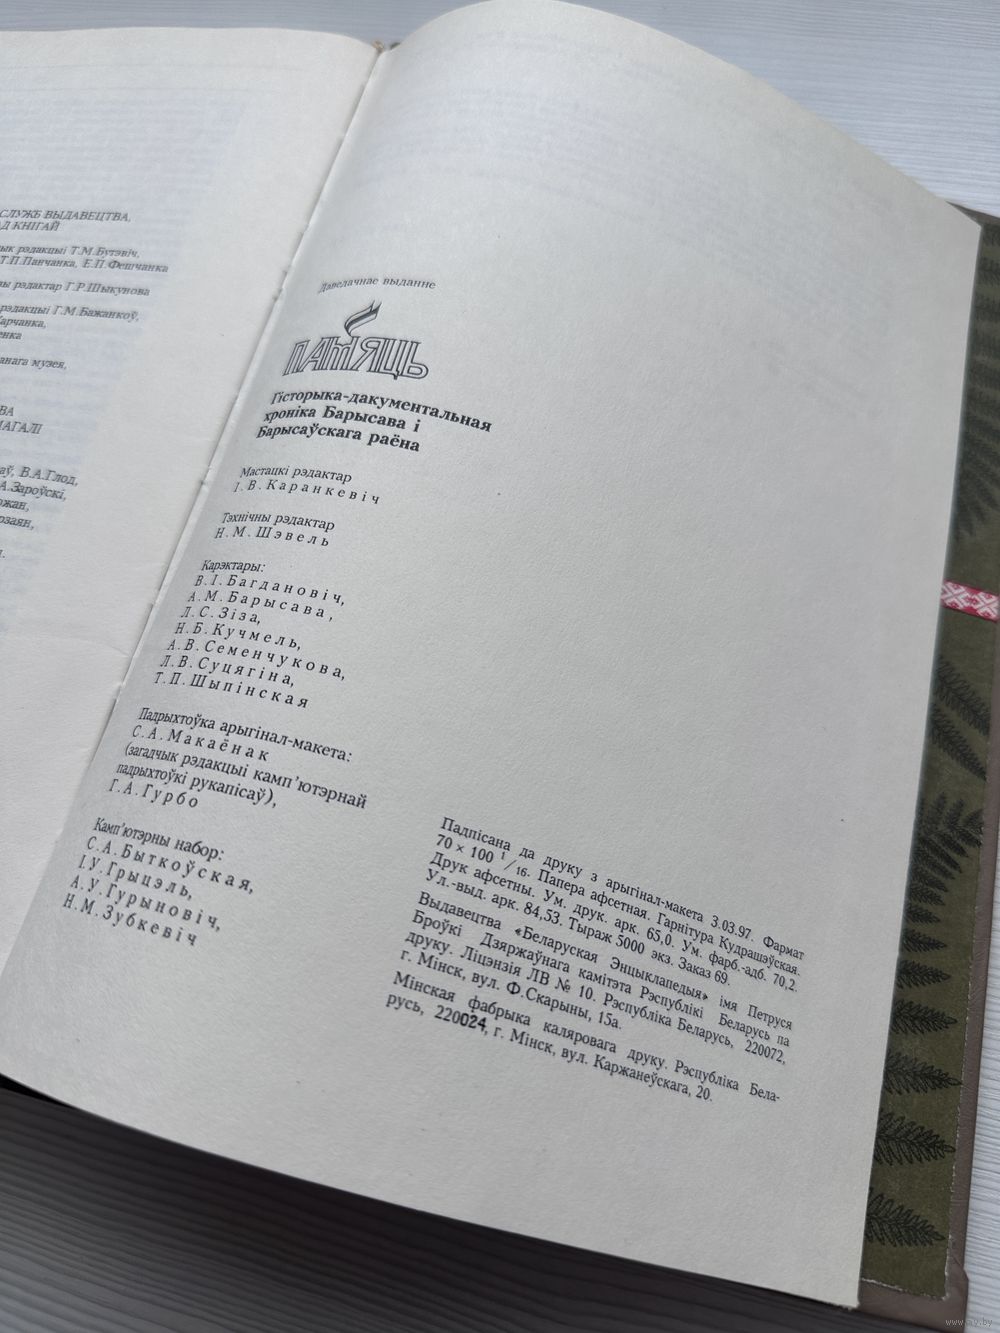 СЛУЖБ ВЫДАВЕЦТВА,
АД КНІГАЙ
рэдакцыі Т.М.Бутэвіч,
Т.П.Панчанка, Е.П.Фешчанка
рэдактар Г.Р.Шыкунова
рэдакцыі Г.М.Бажанкоў,
музея,
В.А.Глод,
А.Зароўскі,
Даведачнае выданне
ПАМЯЦЬ
Гісторыка-дакументальная
хроніка Барысава і
Барысаўскага раёна
Мастацкі рэдактар
І.В.Каранкевіч
Тэхнічны рэдактар
Н.М.Шэвель
Карэктары:
В.І.Багдановіч,
А.М.Барысава,
Л.С.Зіза,
Н.Б.Кучмель,
А.В.Семенчукова,
Л.В.Суцягіна,
Т.П.Шыпінская
Падрыхтоўка арыгінал-макета:
С.А.Макаёнак
(загадчык рэдакцыі камп'ютэрнай
падрыхтоўкі рукапісаў),
Г.А.Гурбо
Камп'ютэрны набор:
С.А.Быткоўская,
І.У.Грыцэль,
А.У.Гурыновіч,
Н.М.Зубкевіч
Падпісана да друку з арыгінал-макета 3.03.97. Фармат
70 × 100 1/16. Папера афсетная. Гарнітура Кудрашэўская.
Друк афсетны. Ум. друк. арк. 65,0. Ум. фарб.-адб. 70,2.
Ул.-выд. арк. 84,53. Тыраж 5000 экз. Заказ 69.
Выдавецтва «Беларуская Энцыклапедыя» імя Петруся
Броўкі Дзяржаўнага камітэта Рэспублікі Беларусь па
друку. Ліцэнзія ЛВ № 10. Рэспубліка Беларусь, 220072,
г. Мінск, вул. Ф.Скарыны, 15а.
Мінская фабрыка каляровага друку. Рэспубліка Бела-
русь, 220024, г. Мінск, вул. Каржанеўскага, 20.